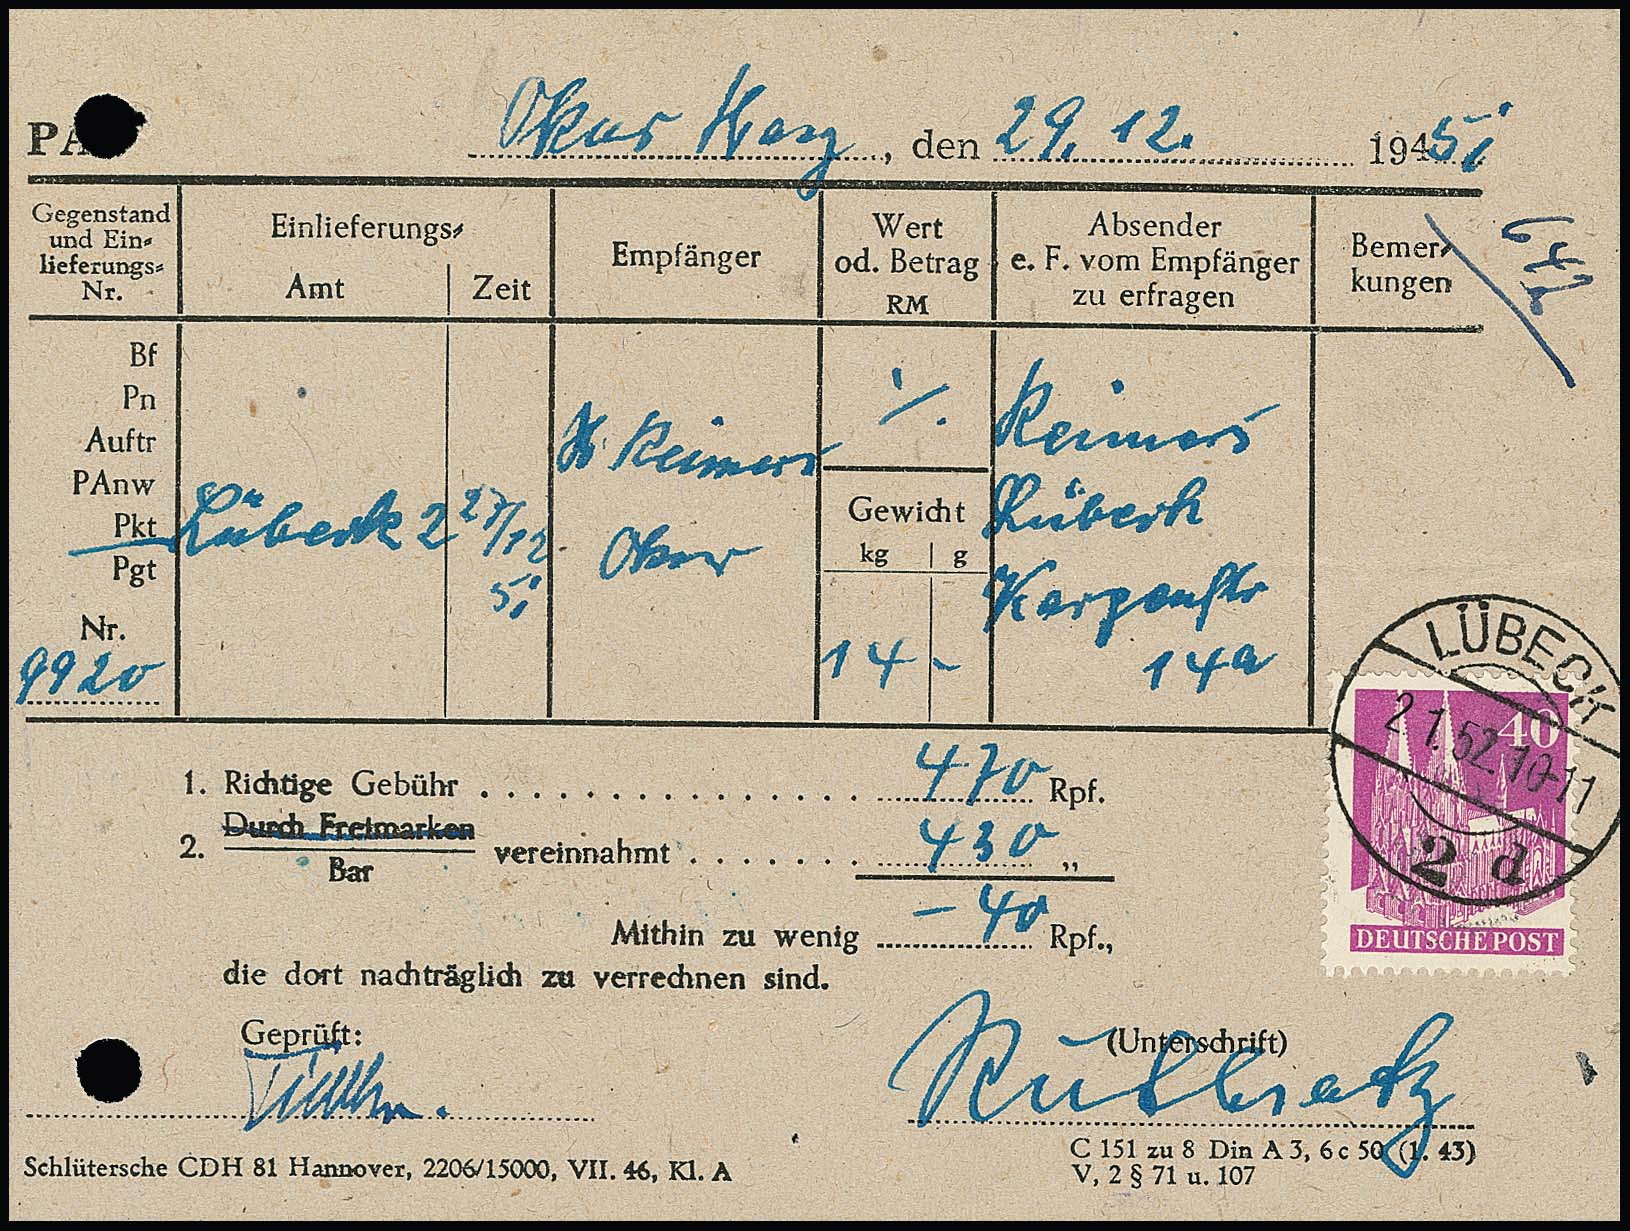 PA
Oker Harz, den 29. 12. 1951
Gegenstand und Ein= lieferungs= Nr.
Einlieferungs=
Amt
Zeit
Empfänger
Wert od. Betrag RM
Absender e. F. vom Empfänger zu erfragen
Bemer= kungen
Bf
Pn
Auftr
PAnw
Pkt
Pgt
Nr.
9920
Lübeck 2
27/12
51
H Reimers
Oker
·/.
Gewicht
kg | g
14 -
Reimers
Lübeck
14a
1. Richtige Gebühr 470 Rpf.
2. Durch Freimarken
Bar
vereinnahmt 430 „
Mithin zu wenig - 40 Rpf.,
die dort nachträglich zu verrechnen sind.
Geprüft:
(Unterschrift)
Schlütersche CDH 81 Hannover, 2206/15000, VII. 46, Kl. A
C 151 zu 8 Din A 3, 6 c 50 (1. 43)
V, 2 § 71 u. 107
LÜBECK
2 1.52.10-11
2 d
40
DEUTSCHE POST